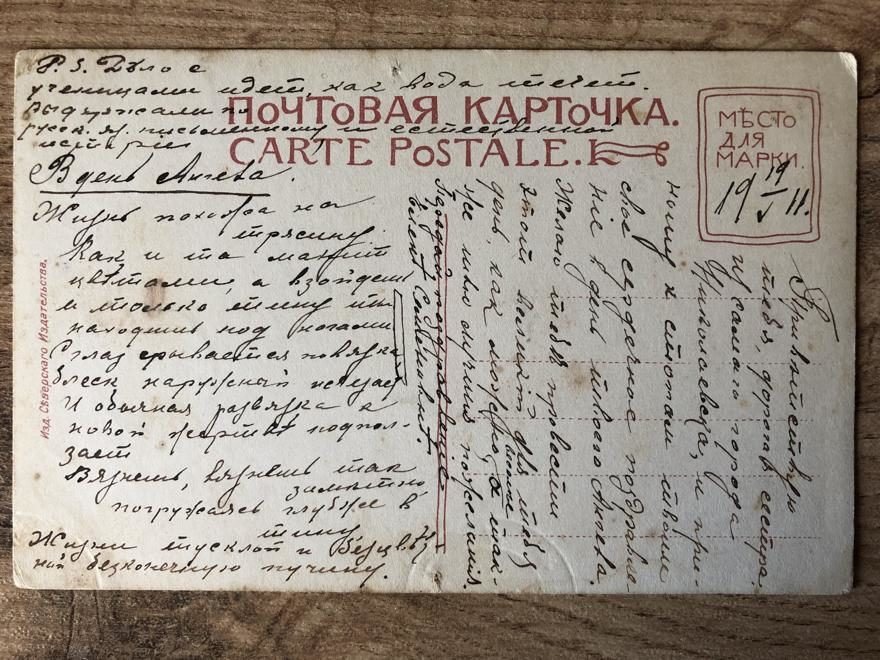 P. S. Дѣло с
ученицами идет, как вода течет.
Выдержали по
русск. яз. письменному и естественной
истории
ПОЧТОВАЯ КАРТОЧКА.
CARTE POSTALE.
МѢСТО
ДЛЯ
МАРКИ.
19 19/V 11.
В день Ангела.
Жизнь похожа на
трясину.
Как и та манит
цвѣтами, а взойдешь
и только тину ты
находишь под ногами
С глаз срывается повязка
блеск наружный исчезает
И обычная развязка к
новой жертвѣ подпол-
зает
Вязнешь, вязнешь так
замѣтно
погружаясь глубже в
тину
Жизни тусклой и безцвѣт
ной безконечную пучину.
Привѣтствую
тебя, дорогая сестра,
из самого города
Николаевска, и при-
ношу к стопам твоим
свое сердечное поздравле-
ніе в день твоего Ангела.
Желаю тебѣ провести
этот великій для тебя
день, как можно
же шлю лучшія пожеланія.
Передай поздравленіе
Изд. Сѣверскаго Издательства.